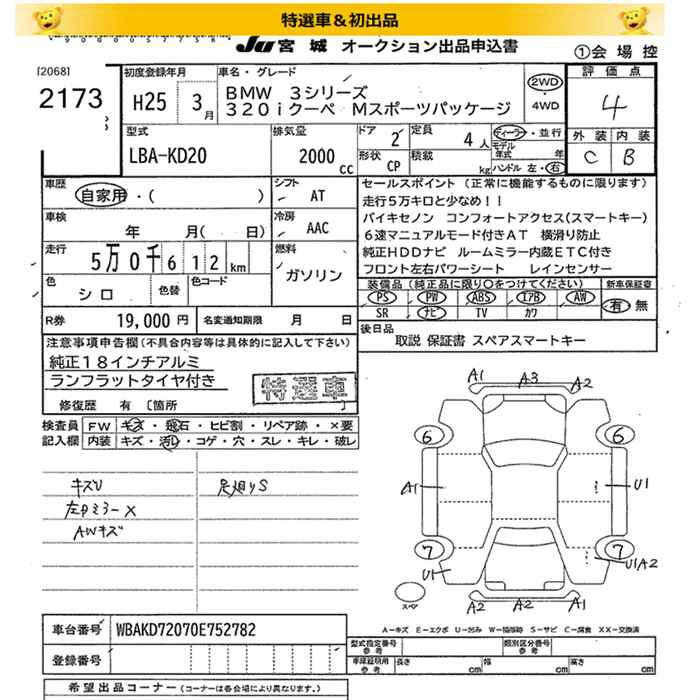 特選車&初出品
JU 宮城 オークション出品申込書
①会場控
[2068]
2173
初度登録年月
H25 3月
車名・グレード
BMW 3シリーズ
320iクーペ Mスポーツパッケージ
2WD
・
4WD
評価点
4
型式
LBA-KD20
排気量
2000 cc
ドア 2
定員 4 人
形状 CP
積載 kg
ディーラー・並行
モデル年式 年
ハンドル 左・右
外装 内装
C B
車歴
自家用・( )
シフト
AT
車検
年 月( 日)
冷房
AAC
走行
5万0千612km
燃料
ガソリン
色
シロ
色替
色コード
R券 19,000円
名変通知期限 月 日
セールスポイント (正常に機能するものに限ります)
走行5万キロと少なめ!!
バイキセノン コンフォートアクセス(スマートキー)
6速マニュアルモード付きAT 横滑り防止
純正HDDナビ ルームミラー内蔵ETC付き
フロント左右パワーシート レインセンサー
装備品 (純正品に限り○をつけてください)
新車保証書
PS PW ABS エアB AW
SR ナビ TV カワ
有・無
後日品
取説 保証書 スペアスマートキー
注意事項申告欄 (不具合内容等は具体的に記入して下さい)
純正18インチアルミ
ランフラットタイヤ付き
特選車
修復歴 有 [箇所
検査員記入欄
FW キズ・飛石・ヒビ割・リペア跡・×要
内装 キズ・汚レ・コゲ・穴・スレ・キレ・破レ
キズU
左Dミラー×
AWキズ
足廻りS
A1 A3 A2
6 6
A1 U1
7 7
U1 U1A2
スペア
A2 A2 A1
A-キズ E-エクボ U-凹み W-補修跡 S-サビ C-腐食 XX-交換済
車台番号 WBAKD72070E752782
登録番号
型式指定番号 参考
類別区分番号 参考
車庫証明用 参考
長さ cm 幅 cm 高さ cm
希望出品コーナー (コーナーは各会場により異なります。)